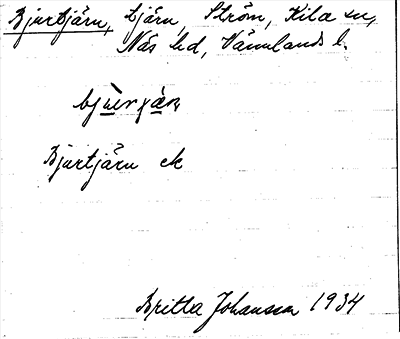 Bjurtjärn, tjärn, Ström, Kila sn,
Näs hd, Värmlands l.
Bjurtjärn ek
Britta Johansson 1934